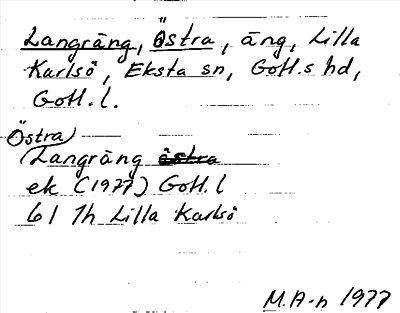 Langräng, Östra, äng, Lilla
Karlsö, Eksta sn, Gotl.s hd,
Gotl. l.
Östra
Langräng östra
ek (1977) Gotl. l
6I 7h Lilla Karlsö
M.A-n 1977